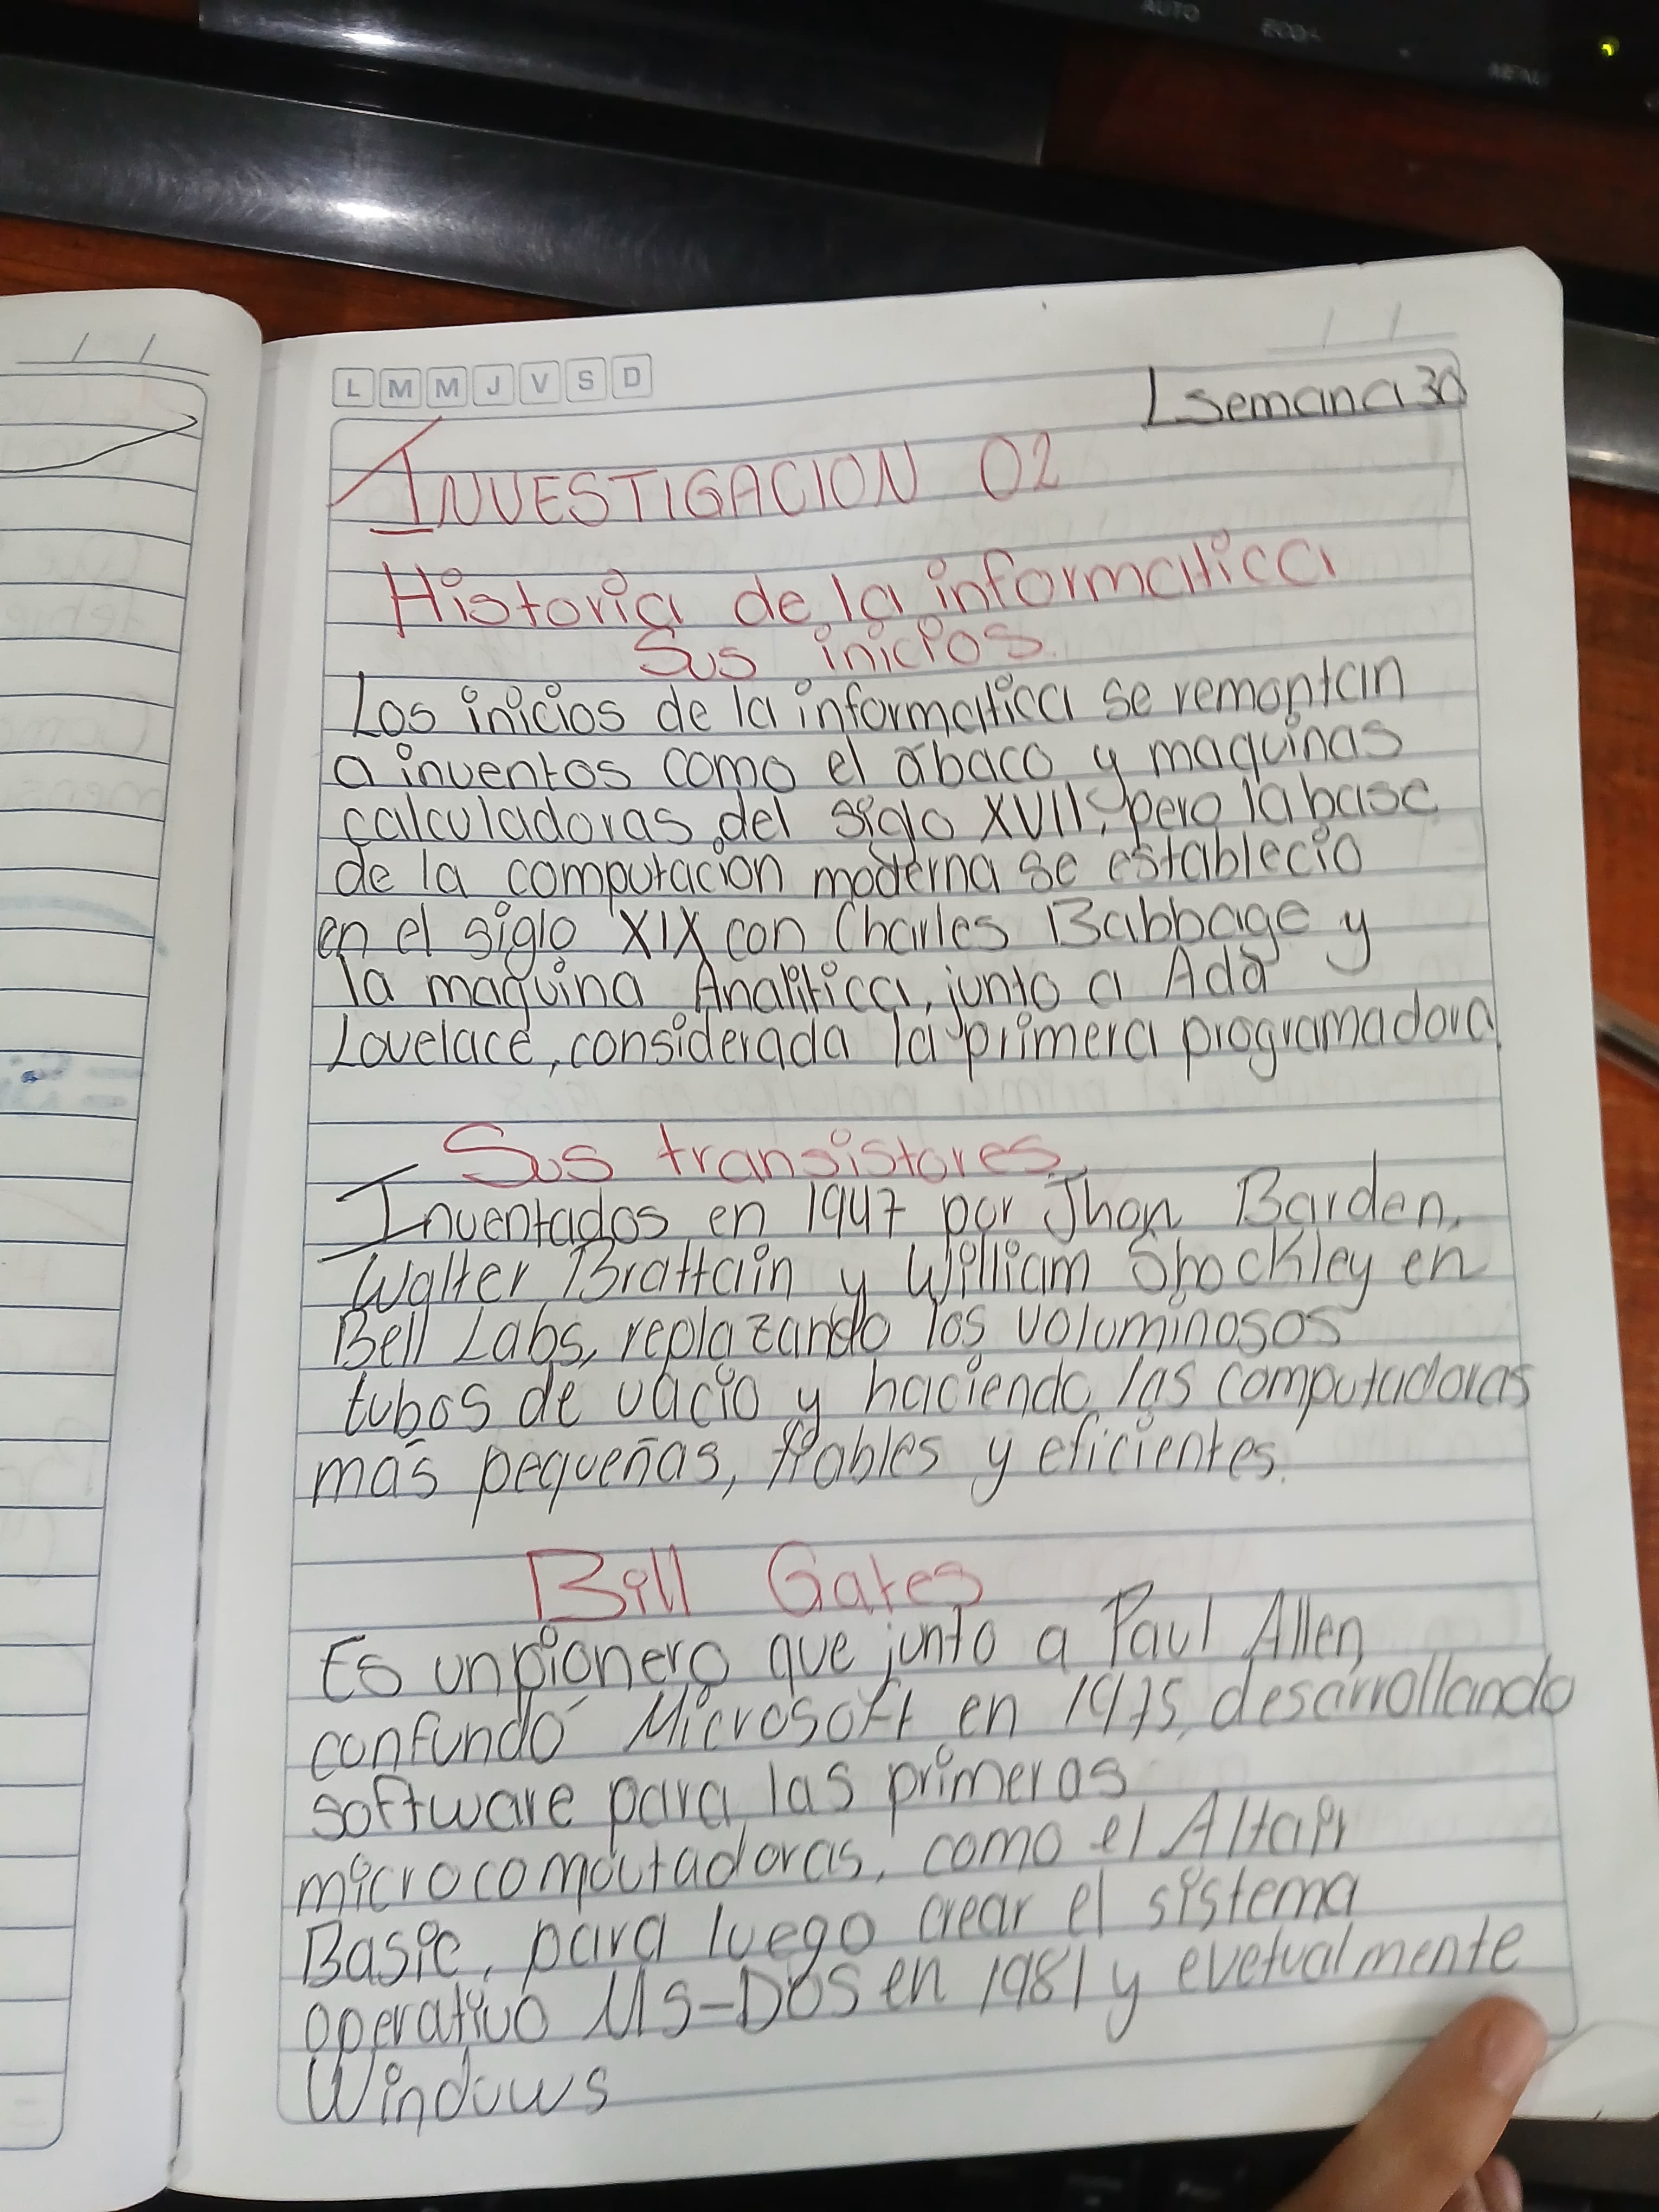 AUTO ECO MENU
L M M J V S D
Semana 30
INVESTIGACION 02
Historia de la informatica
Sus inicios.
Los inicios de la informatica se remontan
a inventos como el ábaco y maquinas
calculadoras del siglo XVII, pero la base
de la computación moderna se establecio
en el siglo XIX con Charles Babbage y
la maquina Analitica, junto a Ada
Lovelace, considerada la primera programadora.
Sus transistores
Inventados en 1947 por Jhon Barden,
Walter Brattain y William Shockley en
Bell Labs, replazando los voluminosos
tubos de vacio y haciendo las computadoras
más pequeñas, fiables y eficientes.
Bill Gates
Es un pionero que junto a Paul Allen,
confundó Microsoft en 1975, desarrollando
software para las primeras
microcomputadoras, como el Altair
Basic, para luego crear el sistema
operativo MS-DOS en 1981 y evetualmente
Windows